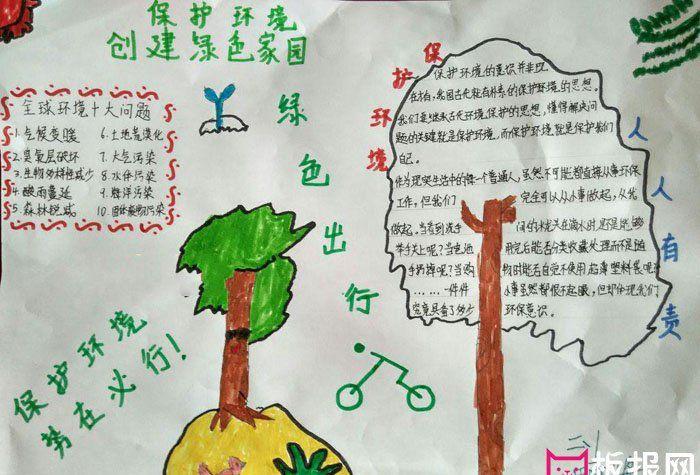 保护环境
创建绿色家园
全球环境十大问题
1.气候变暖
2.臭氧层破坏
3.生物多样性减少
4.酸雨蔓延
5.森林锐减
6.土地荒漠化
7.大气污染
8.水体污染
9.海洋污染
10.固体废物污染
绿色出行
保护环境
保护环境的意识并非现
在有,我国古代就有朴素的保护环境的思想。
我们是继承古代环境保护的思想,懂得解决问
题的关键就是保护环境,而保护环境就是保护我们
自己。
作为现实生活中的每一个普通人,虽然不可能都直接从事环保
工作,但我们
完全可以从小事做起,从我
做起。当看到洗手
间的水龙头在滴水时还是能够
举手关上呢?当电池
用完后能否分类收藏处理而不是随
手扔掉呢?当购
物时能否自觉不使用超薄塑料袋呢?
……一件件
小事虽然都很不起眼,但却体现我们
究竟具备了多少
环保意识。
人人有责
保护环境
势在必行!
板报网